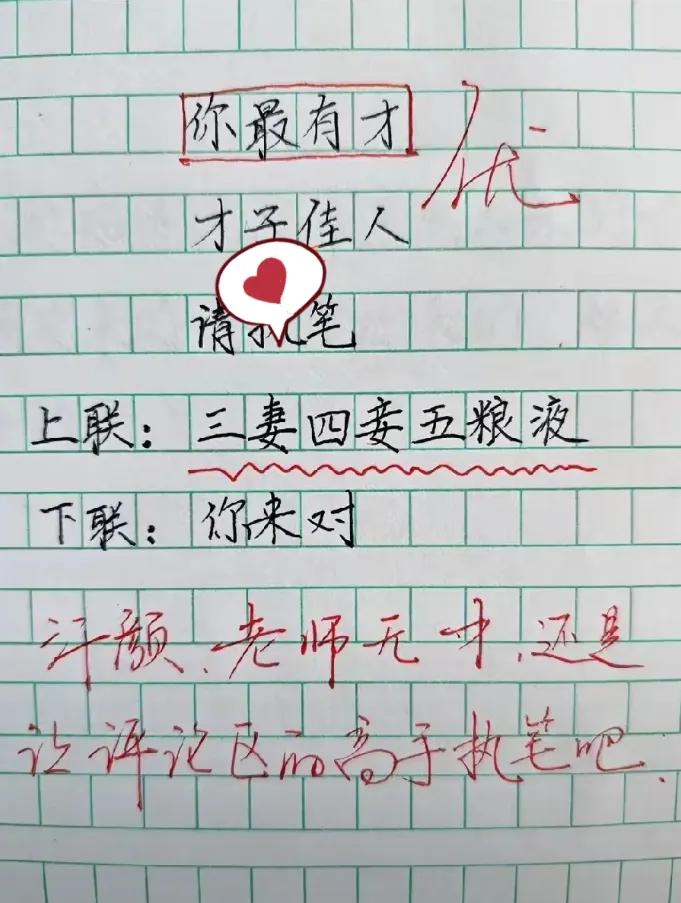 你最有才
优
才子佳人
请执笔
上联：三妻四妾五粮液
下联：你来对
汗颜、老师无才，还是
让评论区的高手执笔吧.